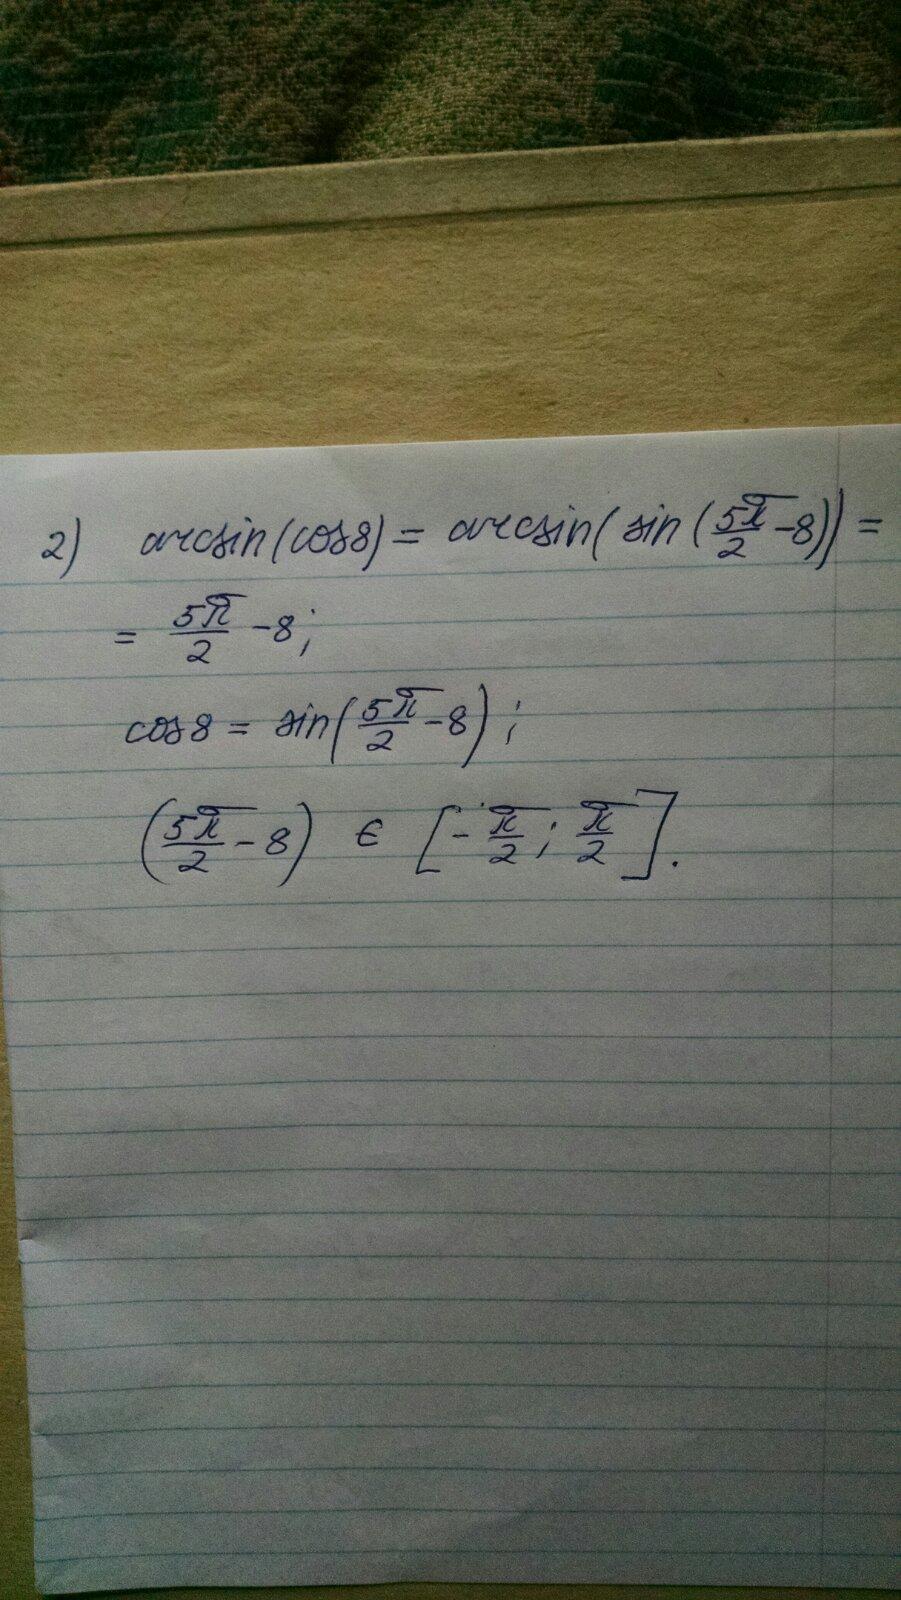 2) arcsin(cos8) = arcsin(sin(5π/2-8)) =
= 5π/2 -8;
cos8 = sin(5π/2-8);
(5π/2-8) ∈ [-π/2; π/2].